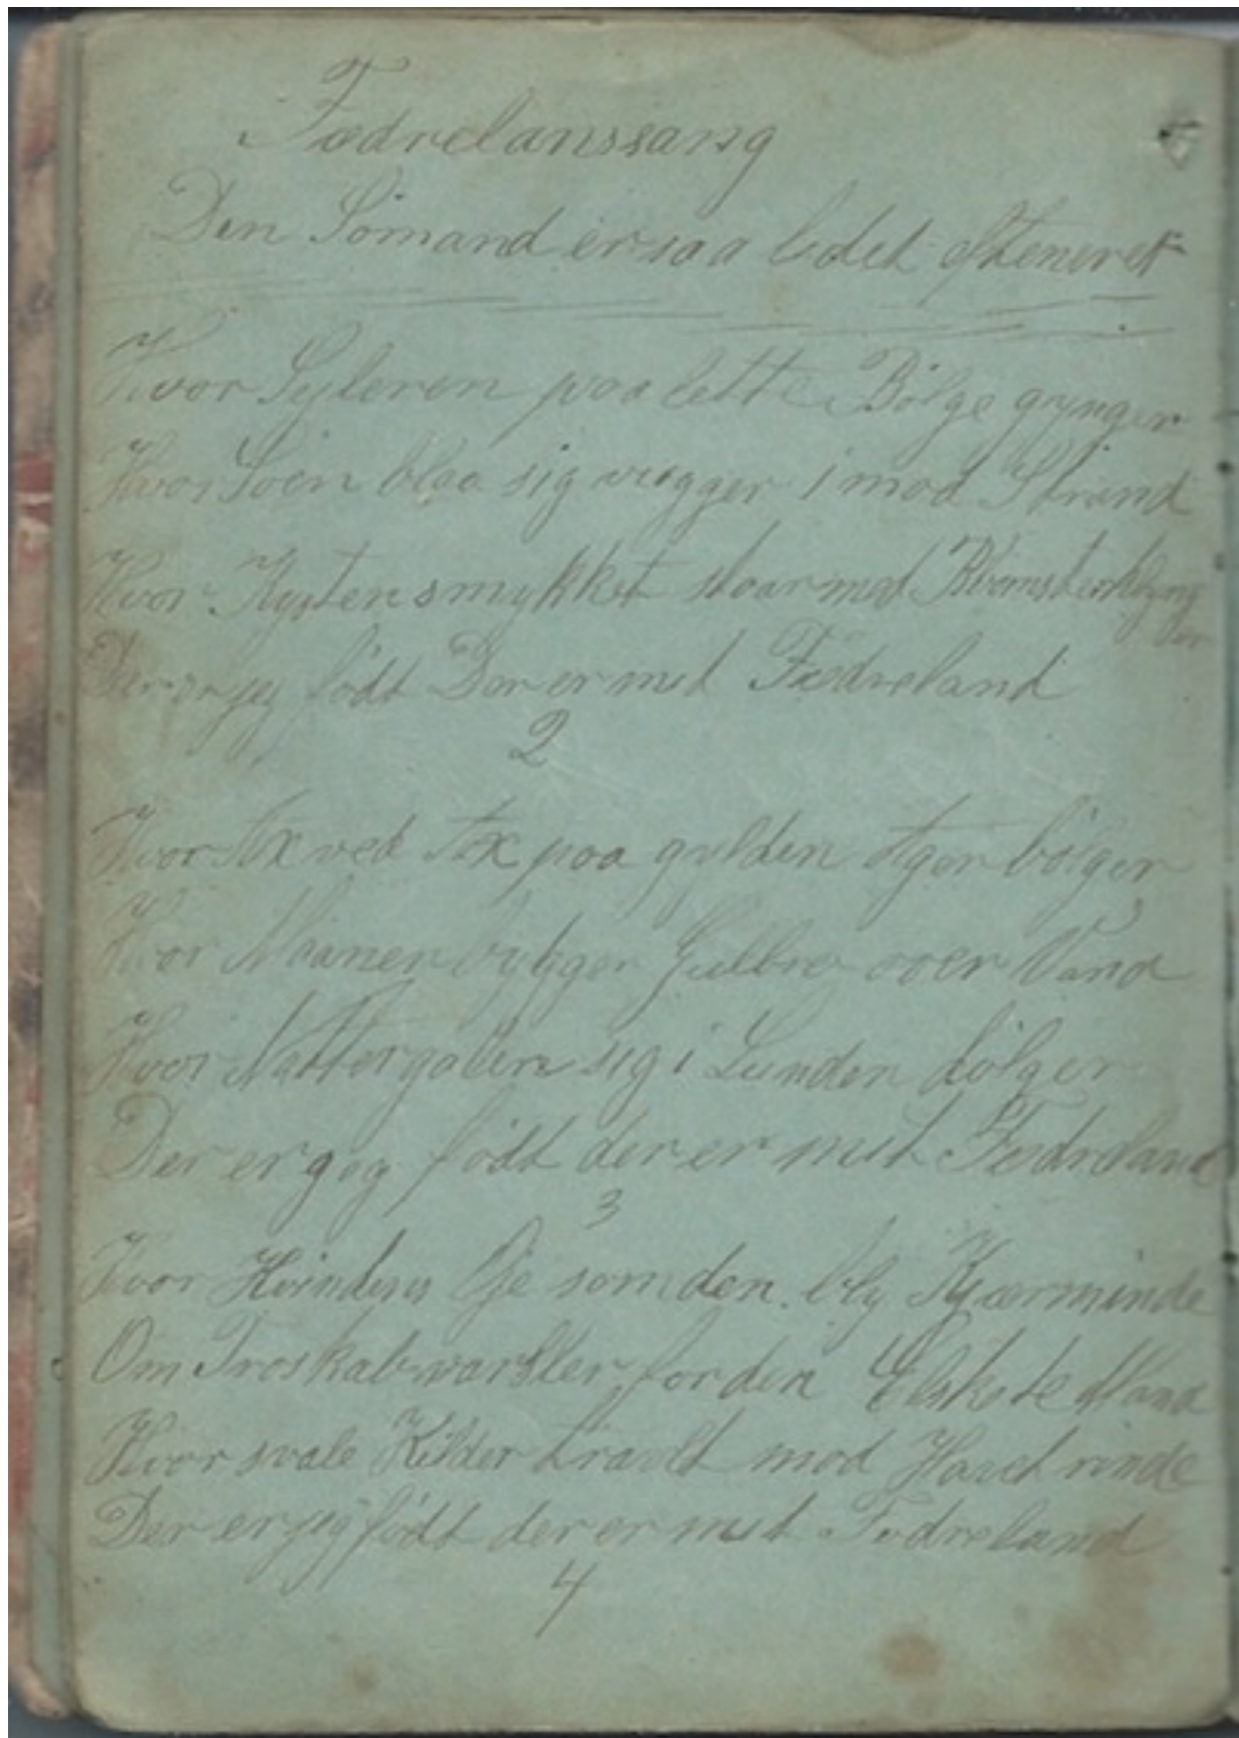 Fædrelanssang
Den Sömand er saa
Hvor Sejleren paa lette Bölge gynger
Hvor Söen blaa sig vugger i mod Strand
Hvor Kysten smykket staar med Blomsterklyng
der
Der er jeg födt Der er mit Fædreland
2
Hvor Ax ved Ax paa gylden Ager bölger
Hvor Maanen bygger Guldbro over Vand
Hvor Nattergalen sig i Lunden dölger
Der er geg födt der er mit Fædreland
3
Hvor Kvindens Öje som den bly Kjærminde
Om Troskab varsler for den Elskede Mand
Hvor svale Kilder travlt mod Havet rinde
Der er jeg födt der er mit Fædreland
4